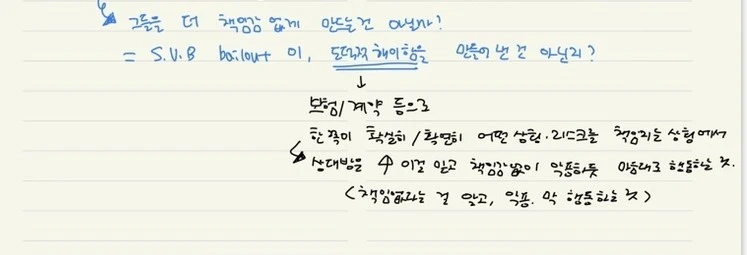 그들을 더 책임감 없게 만드는건 아닌가?
= S.V.B bailout 이, 도덕적 해이함을 만들어 낸 건 아닌지?
↓
보험/계약 등으로
한 쪽이 확실히/확연히 어떤 상황·리스크를 책임지는 상황에서
상대방은 ↑ 이걸 믿고 책임감없이 악용하듯 마음대로 행동하는 것.
(책임없다는 걸 알고, 악용. 막 행동하는 것)